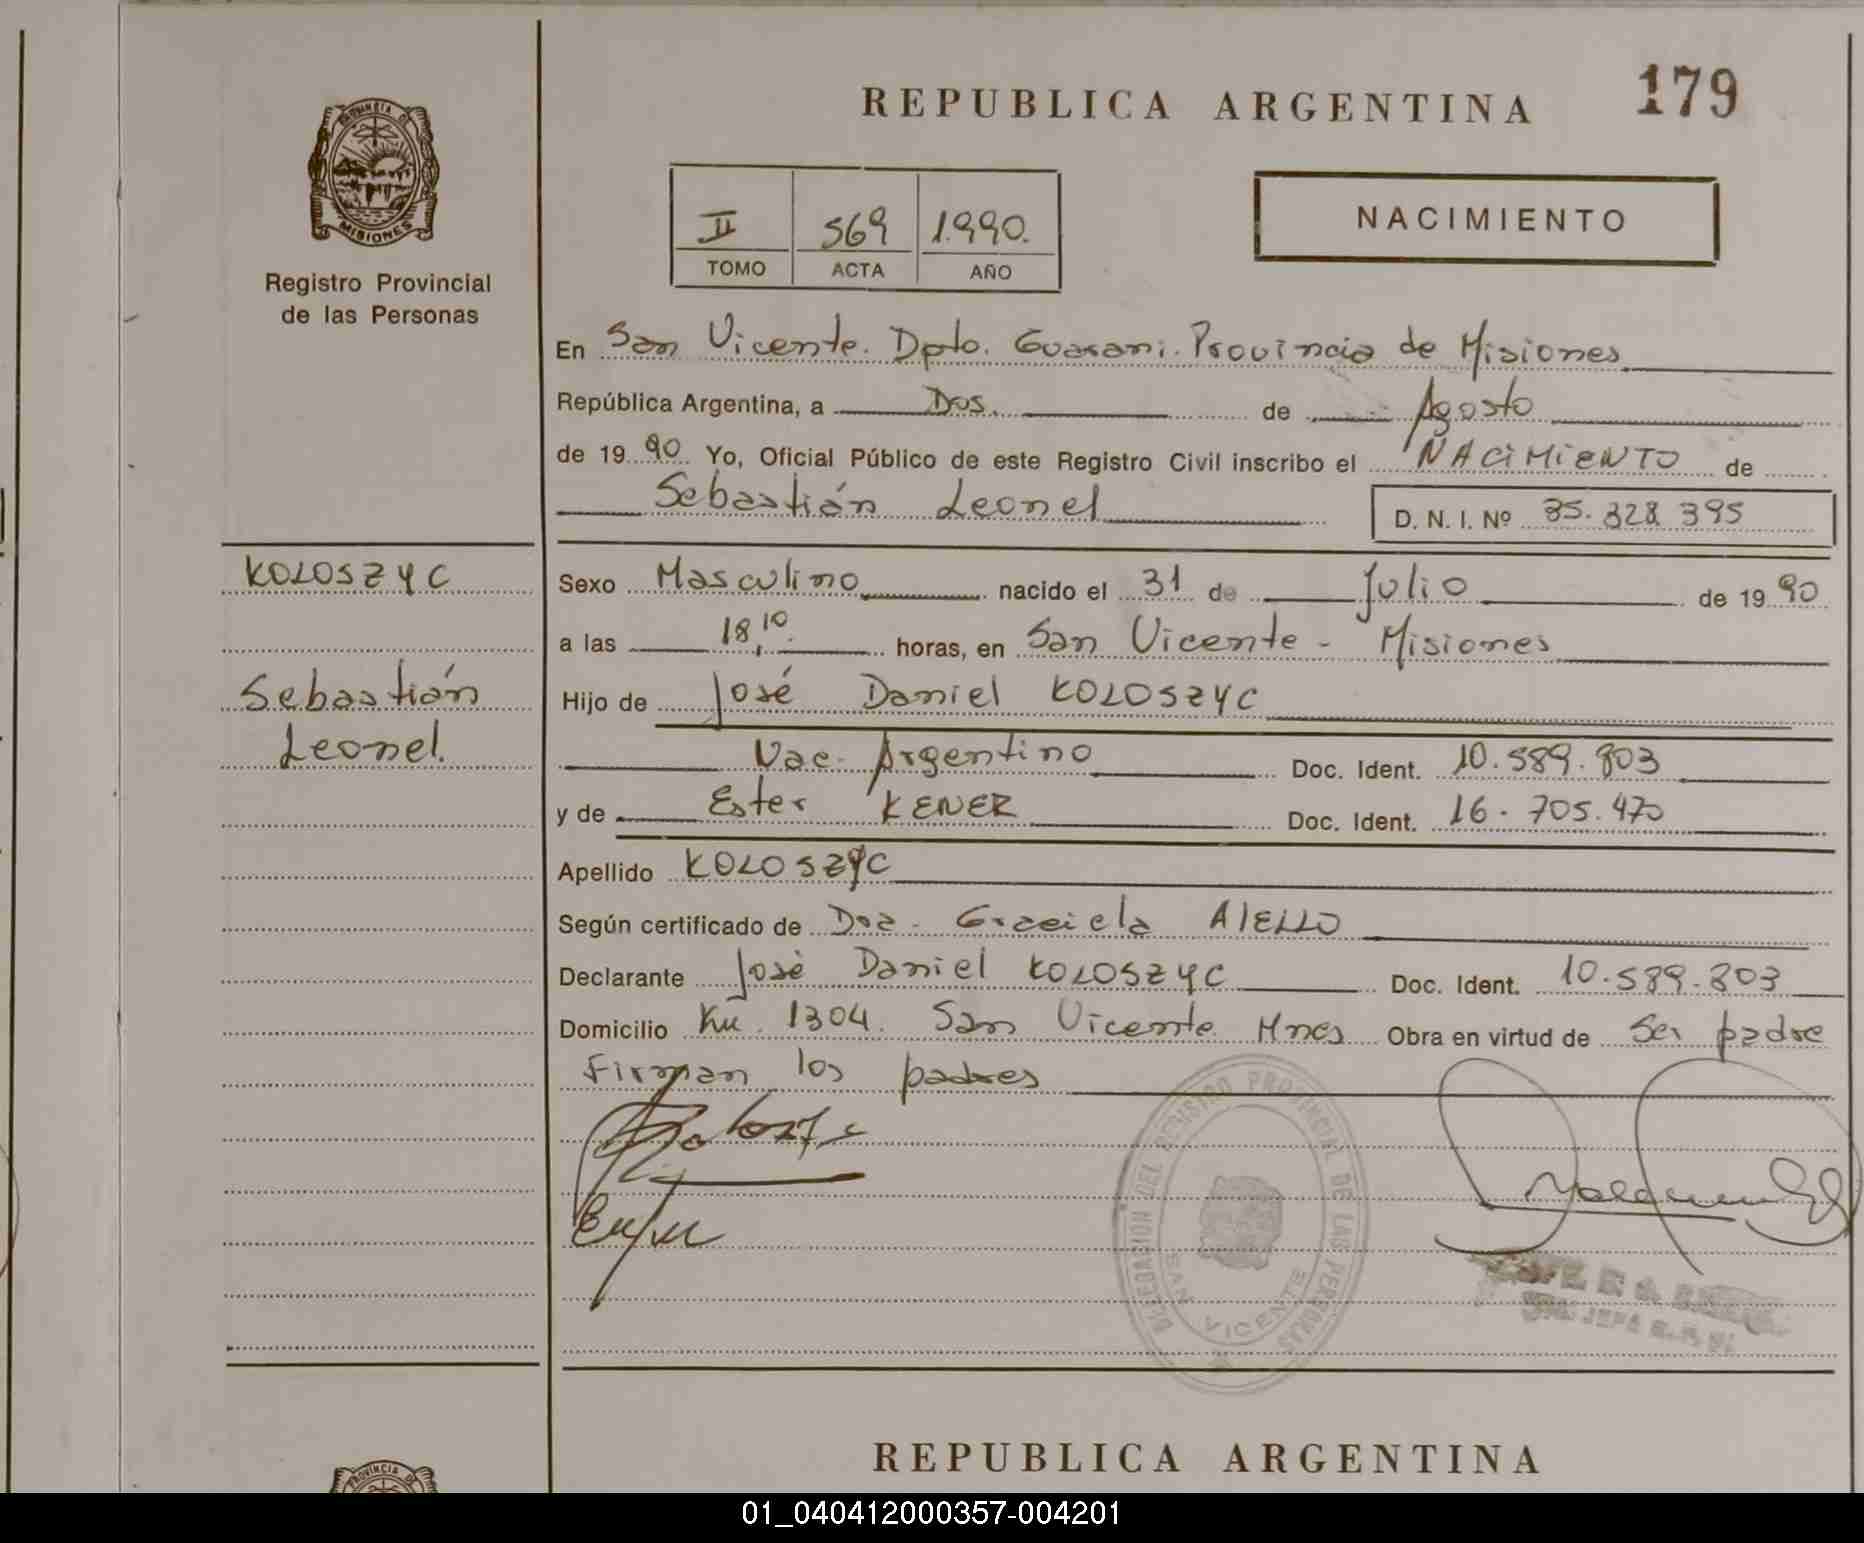 REPUBLICA ARGENTINA
179
PROVINCIA DE
MISIONES
Registro Provincial
de las Personas
II 569 1.990.
TOMO ACTA AÑO
NACIMIENTO
En San Vicente. Dpto. Guarani. Provincia de Misiones
República Argentina, a Dos. de Agosto
de 19 90 Yo, Oficial Público de este Registro Civil inscribo el NACiMiENTO de
Sebastián Leonel
D. N. I. Nº 35.328.395
KOLOSZYC
Sebastián
Leonel.
Sexo Masculino nacido el 31 de Julio de 19 90
a las 18,10. horas, en San Vicente - Misiones
Hijo de José Daniel KOLOSZYC
Nac. Argentino Doc. Ident. 10.589.803
y de Ester KENER Doc. Ident. 16.705.470
Apellido KOLOSZYC
Según certificado de Dra. Graciela AIELLO
Declarante José Daniel KOLOSZYC Doc. Ident. 10.589.803
Domicilio Km. 1304. San Vicente Mnes Obra en virtud de Ser padre
Firman los padres
DELEGACION DEL REGISTRO PROVINCIAL DE LAS PERSONAS
SAN VICENTE
REPUBLICA ARGENTINA
PROVINCIA DE
01_040412000357-004201